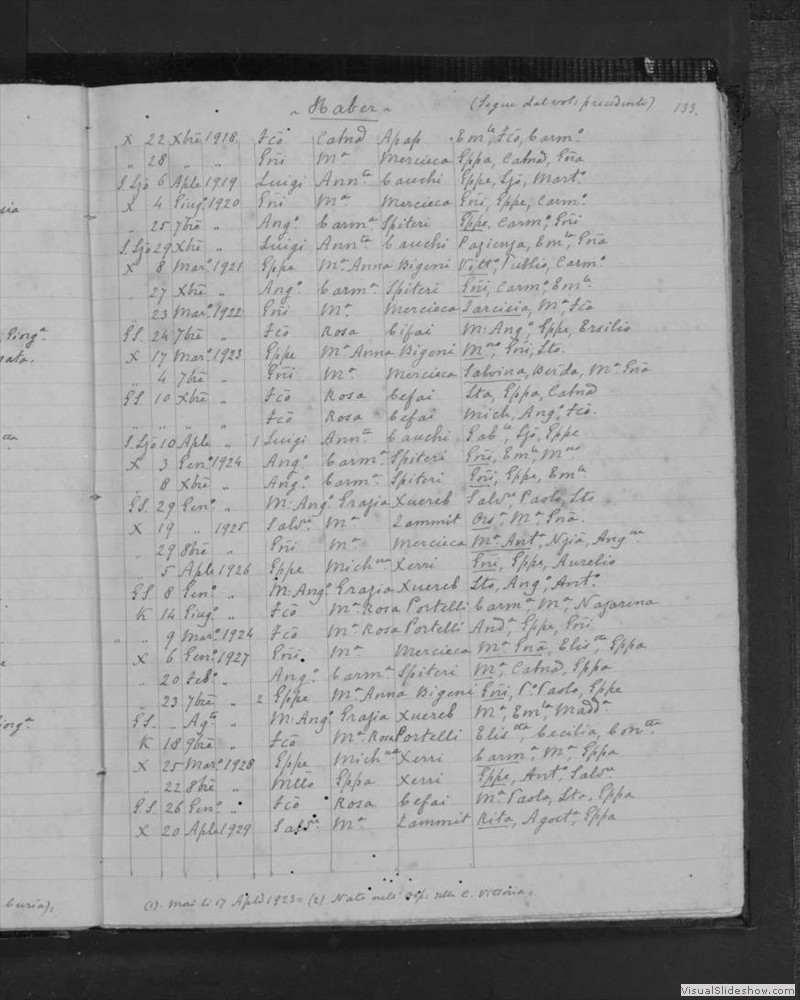 ~ Haber ~ (Segue dal vol: precedente) 133.
X 22 Xbre 1918 Fco Catnd Apap Emla, Fco, Carmo
„ 28 „ „ Gni Ma Mercieca Gppa, Catnd, Gna
S. Ljo 6 Aple 1919 Luigi Annta Cauchi Gppe, Ljo, Marto
X 4 Giugo 1920 Gni Ma Mercieca Gni, Gppe, Carmo
„ 25 7bre „ Ango Carma Spiteri Gppe, Carmo, Gni
S. Ljo 29 Xbre „ Luigi Annta Cauchi Pazienza, Emla, Gna
X 8 Maro 1921 Gppe Ma Anna Bigeni Vitto, Publio, Carmo
„ 27 Xbre „ Ango Carma Spiteri Gni, Carmo, Emla
„ 23 Maro 1922 Gni Ma Mercieca Narcisia, Ma Fca
GS. 24 7bre „ Fco Rosa Cefai M: Ango, Gppe, Ersilio
X 17 Maro 1923 Gppe Ma Anna Bigeni Mno, Gni, Sto
„ 4 7bre „ Gni Ma Mercieca Salvina, Berda, Ma Gna
GS. 10 Xbre „ Fco Rosa Cefai Sta, Gppa, Catnd
„ „ „ „ Fco Rosa Cefai Mich, Ango, Fco
S. Ljo 10 Aple „ 1 Luigi Annta Cauchi Gable, Ljo, Gppe
X 3 Geno 1924 Ango Carma Spiteri Gni, Emla, Mno
„ 8 Xbre „ Ango Carma Spiteri Gni, Gppe, Emle
GS. 29 Geno „ M: Ango Grazia Xuereb Salvre, Paolo, Sto
X 19 „ 1925 Salvre Ma Zammit Orsa, Ma Gna
„ 29 8bre „ Gni Ma Mercieca Ma Anta, Ngia, Angna
„ 5 Aple 1926 Gppe Michna Xerri Gni, Gppe, Aurelio
GS. 8 Geno „ M: Ango Grazia Xuereb Sto, Ango, Anto
K 14 Giugo „ Fco Ma Rosa Portelli Carma, Ma, Nazarena
„ „ 9 Maro 1924 Fco Ma Rosa Portelli Anda, Gppe, Gni
X 6 Geno 1927 Gni Ma Mercieca Ma Gna, Elistta, Gppa
„ 20 Febo „ Ango Carma Spiteri Ma, Catnd, Gppa
„ 23 7bre „ 2 Gppe Ma Anna Bigeni Gni, Po Paolo, Gppe
GS. „ Agto „ M: Ango Grazia Xuereb Ma, Emla, Madda
K 18 9bre „ Fco Ma Rosa Portelli Elistta, Cecilia, Contta
X 25 Maro 1928 Gppe Michna Xerri Carma, Ma, Gppa
„ 22 8bre „ Mllo Gppa Xerri Gppe, Anto, Salvre
GS. 26 Geno „ Fco Rosa Cefai Ma Paola, Sta, Gppa
X 20 Aple 1929 Salvre Ma Zammit Rita, Agosta, Gppa
(1). Morì li 17 Aple 1923 = (2) Nato nell' Osp. nella C. Vittoria =
Giorga
nata.
Curia) =
VisualSlideshow.com